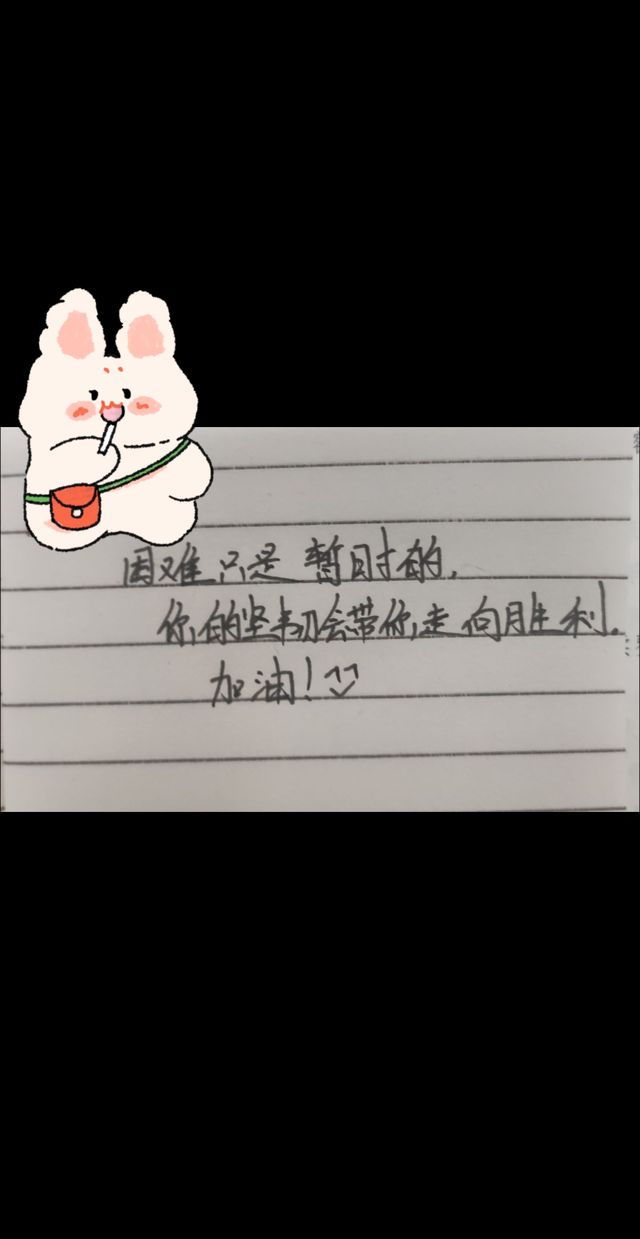 困难只是暂时的,
你的坚韧会带你走向胜利.
加油!